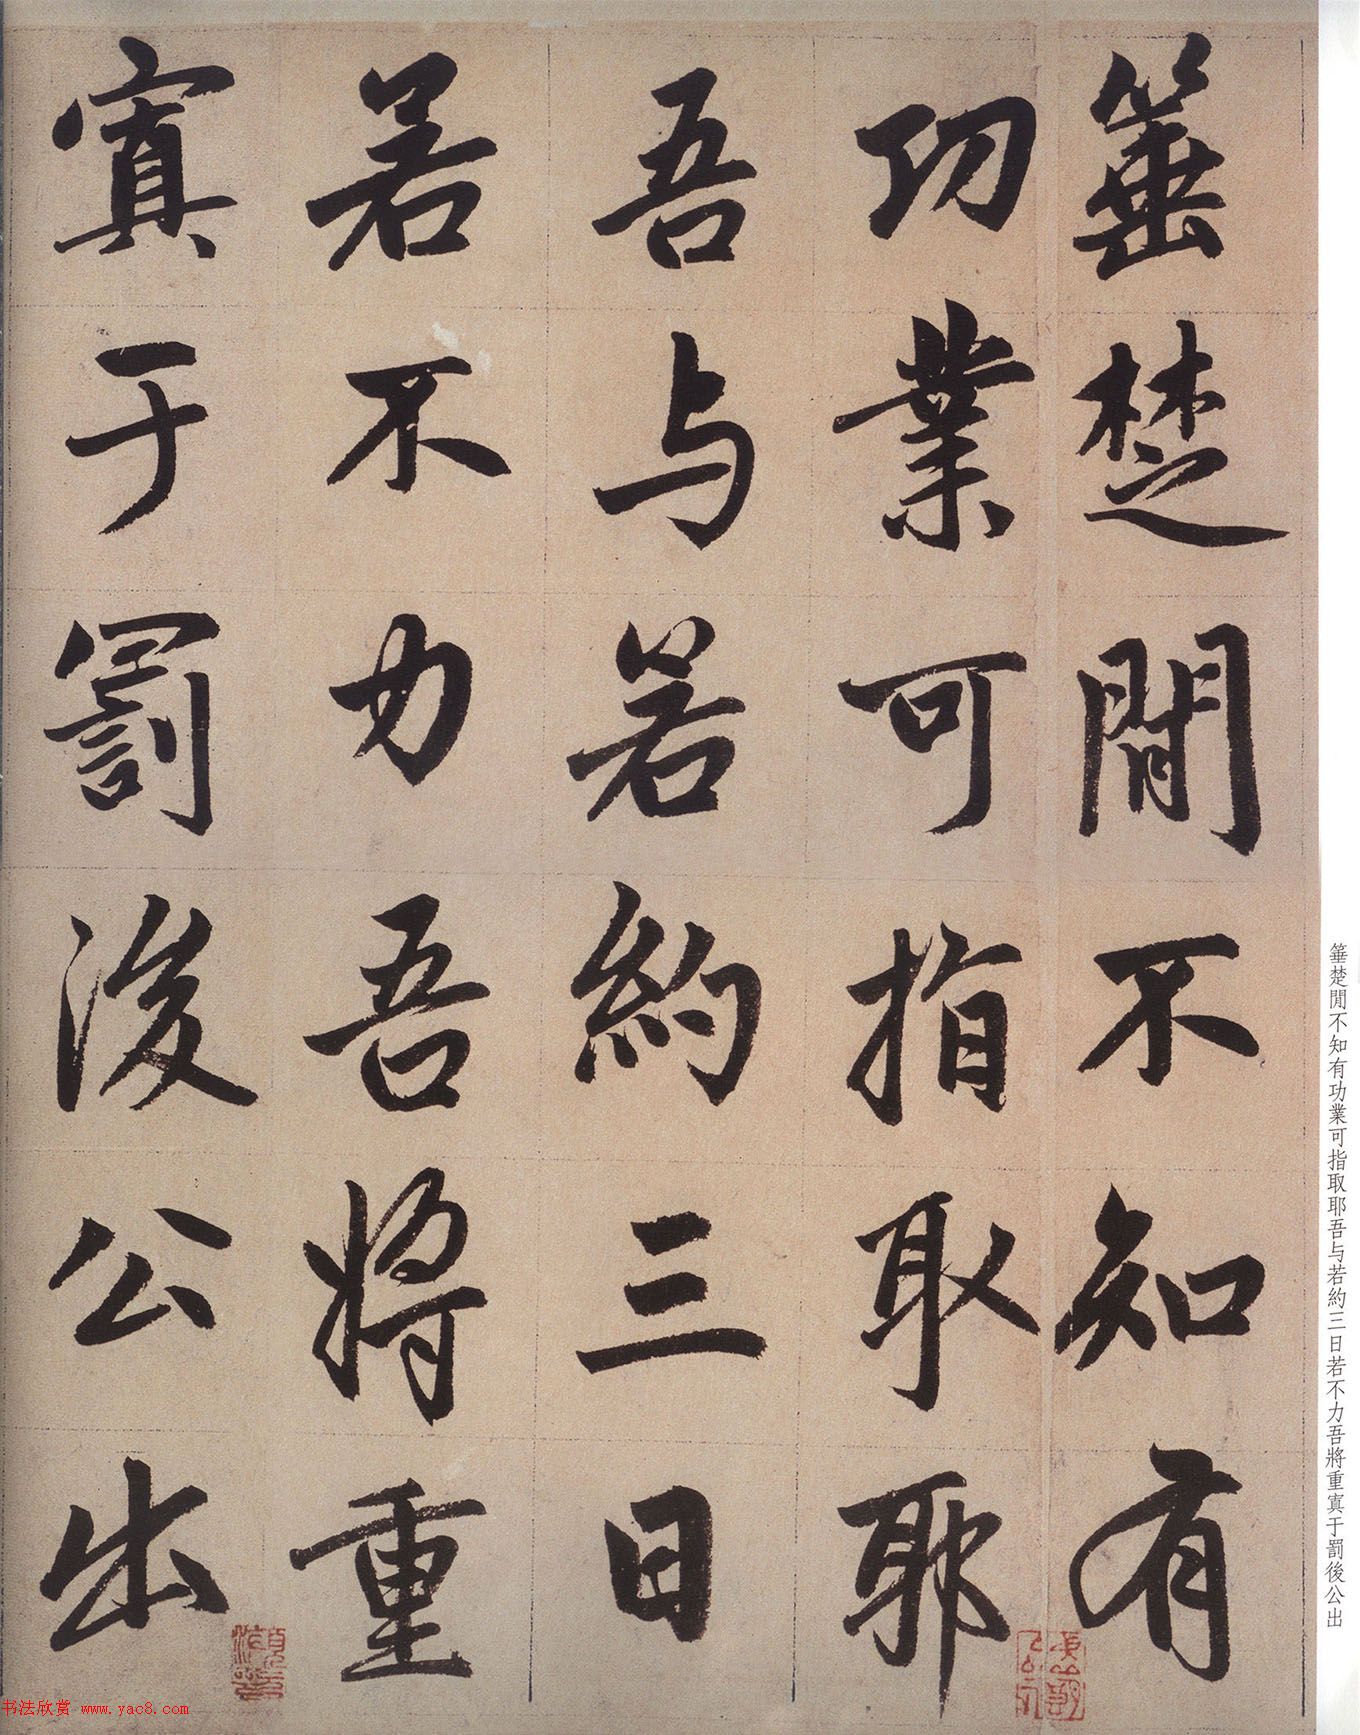 箠楚閒不知有
功業可指取耶
吾与若約三日
若不力吾將重
寘于罰後公出
箠楚閒不知有功業可指取耶吾与若約三日若不力吾將重寘于罰後公出
书法欣赏 www.yac8.com